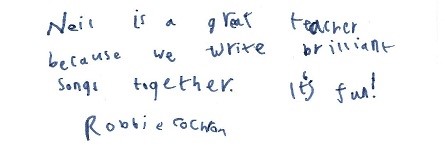 Neil is a great teacher
because we write brilliant
songs together. It's fun!
Robbie Cochran